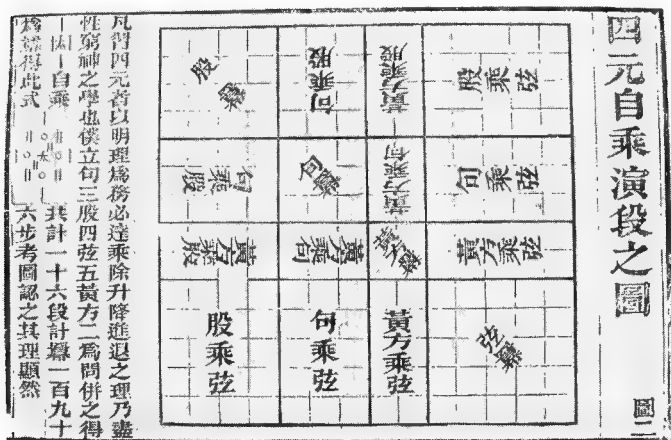 四元自乘演段之圖
圖二
股乘弦
黃方乘股
句乘股
股冪
句乘弦
黃方乘句
句冪
句乘股
黃方乘弦
黃方冪
黃方乘句
黃方乘股
弦冪
黃方乘弦
句乘弦
股乘弦
凡習四元者以明理爲務必達乘除升降進退之理乃盡
性窮神之學也僕立句三股四弦五黃方二爲問併之得
自乘
共計一十六段計冪一百九十
得此式
六步考圖認之其理顯然